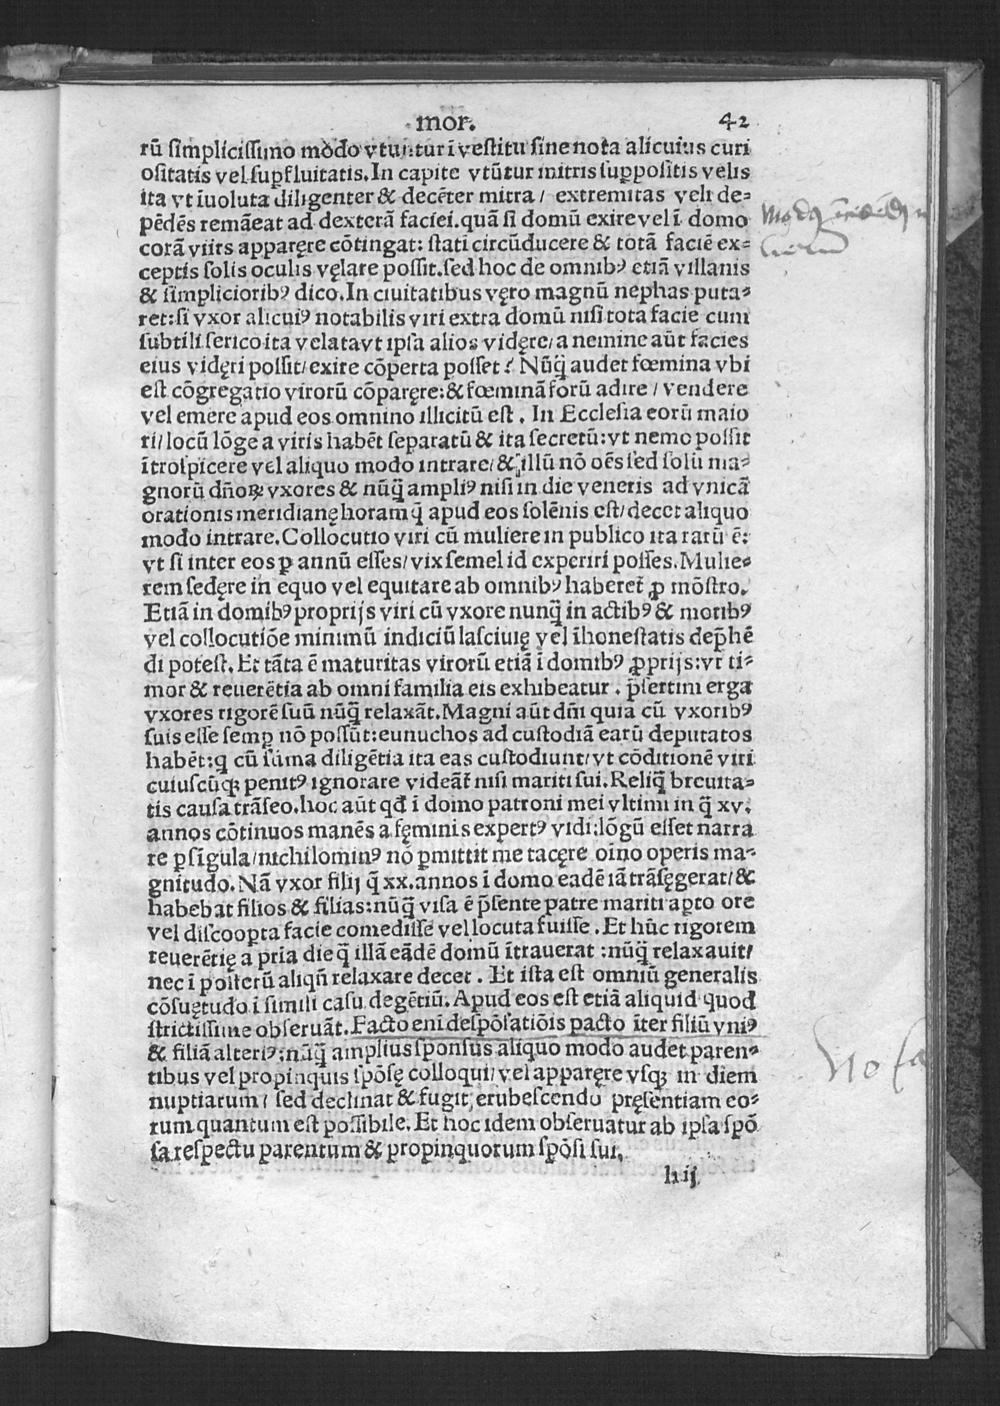 mor. 42
rū simplicissimo modo vtuntur ī vestitu sine nota alicuius curi
ositatis vel supfluitatis. In capite vtūtur mitris suppositis velis
ita vt īuoluta diligenter & decēter mitra / extremitas veli de⸗
pēdēs remāeat ad dexterā faciei. quā si domū exire vel ī domo
corā viris apparęre cōtingat: statī circūducere & totā faciē ex⸗
ceptis solis oculis vęlare possit. sed hoc de omnibꝰ etiā villanis
& simplicioribꝰ dico. In ciuitatibus vęro magnū nephas puta⸗
ret: si vxor alicuiꝰ notabilis viri extra domū nisi tota facie cum
subtili serico ita velata vt ipsa alios vidęre / a nemine aūt facies
eius vidęri possit / exire cōperta posset? Nūq̄ audet fœmina vbi
est cōgregatio virorū cōparęre: & fœminā forū adire / vendere
vel emere apud eos omnino illicitū est. In Ecclesia eorū maio
ri / locū lōge a viris habēt separatū & ita secretū: vt nemo possit
ītrospicere vel aliquo modo intrare / & illū nō oēs sed solū ma⸗
gnorū dn̄oꝝ vxores & nūq̄ ampliꝰ nisi in die veneris ad vnicā
orationis meridianę horam q̄ apud eos solēnis est / decet aliquo
modo intrare. Collocutio viri cū muliere in publico ita rarū ē:
vt si inter eos ꝑ annū esses / vix semel id experiri posses. Mulie⸗
rem sedęre in equo vel equitare ab omnibꝰ haberet̄ ꝓ mōstro.
Etiā in domibꝰ proprijs viri cū vxore nunq̄ in actibꝰ & moribꝰ
vel collocutiōe minimū indiciū lasciuię vel īhonestatis dep̄hē
di potest. Et tāta ē maturitas virorū etiā ī domibꝰ ꝓprijs: vt ti⸗
mor & reuerētia ab omni familia eis exhibeatur. p̄sertim erga
vxores rigorē suū nūq̄ relaxāt. Magni aūt dn̄i quia cū vxoribꝰ
suis esse semꝑ nō possūt: eunuchos ad custodiā earū deputatos
habēt: q cū sūma diligētia ita eas custodiunt / vt cōditionē viri
cuiuscūqꝫ penitꝰ ignorare videāt̄ nisi mariti sui. Reliq̄ breuita⸗
tis causa trāseo. hoc aūt qd̄ ī domo patroni mei vltimi in q̄ xv.
annos cōtinuos manēs a fęminis expertꝰ vidi: lōgū esset narra
re ꝑ sīgula / nichilominꝰ nō ꝑmittit me tacęre oīno operis ma⸗
gnitudo. Nā vxor filij q̄ xx. annos ī domo eadē iā trāsęgerat / &
habebat filios & filias: nūq̄ visa ē p̄sente patre mariti apto ore
vel discoopta facie comedisse vel locuta fuisse. Et hūc rigorem
reuerētię a pria die q̄ illā eādē domū ītrauerat: nūq̄ relaxauit /
nec ī posterū aliqn̄ relaxare decet. Et ista est omniū generalis
cōsuętudo ī simili casu degētiū. Apud eos est etiā aliquid quod
strictissime obseruāt. Facto enī despōsatiōis pacto īter filiū vniꝰ
& filiā alteriꝰ: nūq̄ amplius sponsus aliquo modo audet paren⸗
tibus vel propinquis spōsę colloqui / vel apparęre vsqꝫ in diem
nuptiarum / sed declinat & fugit, erubescendo pręsentiam eo⸗
rum quantum est possibile. Et hoc idem obseruatur ab ipsa spō
sa respectu parentum & propinquorum spōsi sui.
h ij